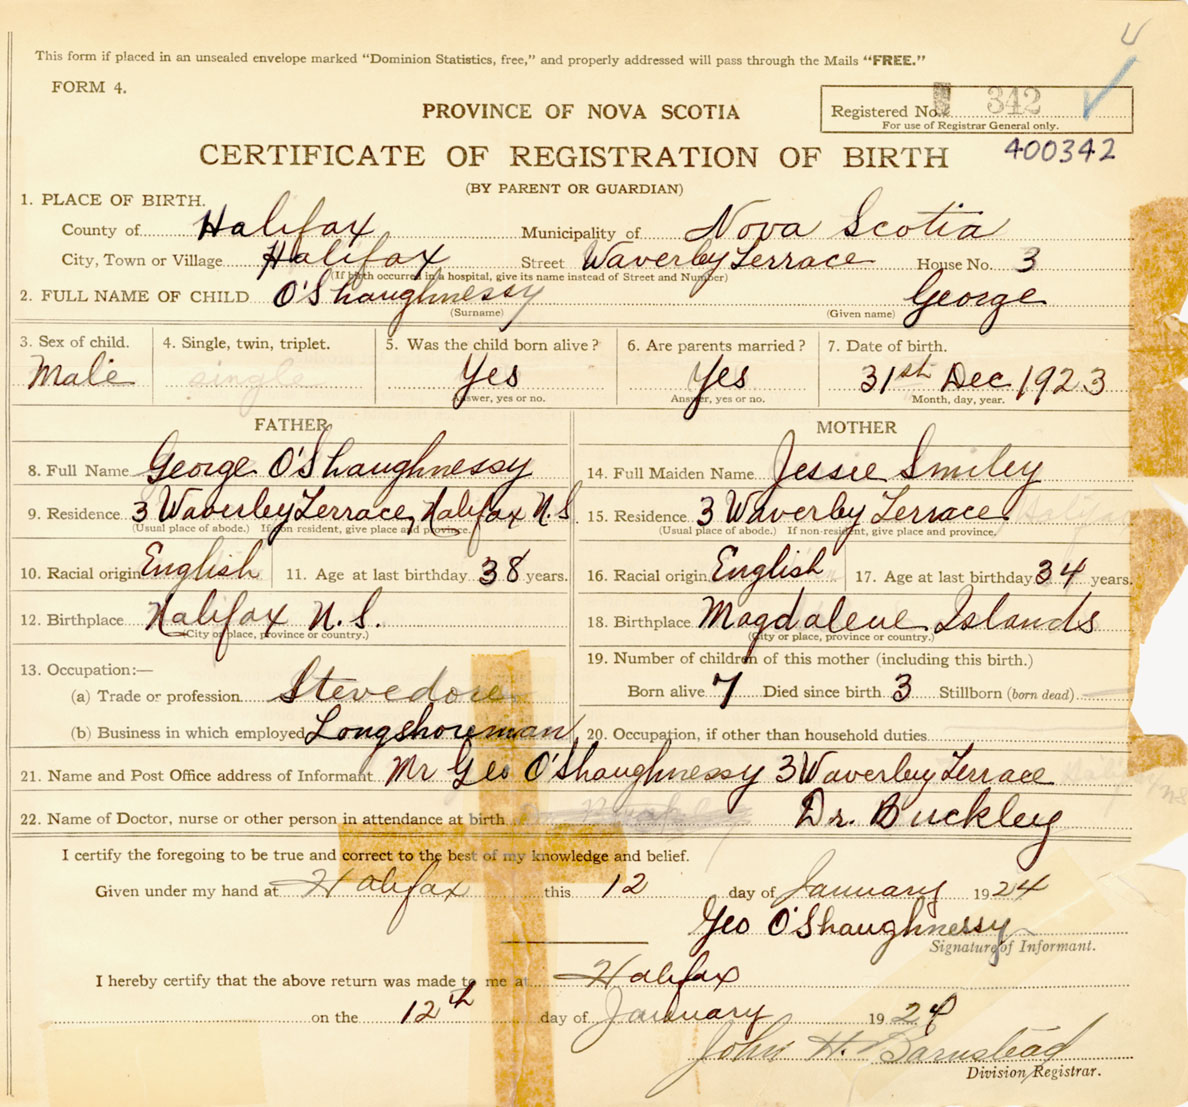 This form if placed in an unsealed envelope marked "Dominion Statistics, free," and properly addressed will pass through the Mails "FREE."
FORM 4.
PROVINCE OF NOVA SCOTIA
Registered No. 342
For use of Registrar General only.
CERTIFICATE OF REGISTRATION OF BIRTH
400342
(BY PARENT OR GUARDIAN)
1. PLACE OF BIRTH.
County of Halifax Municipality of Nova Scotia
City, Town or Village Halifax Street Waverley Terrace House No. 3
(If birth occurred in a hospital, give its name instead of Street and Number)
2. FULL NAME OF CHILD O'Shaughnessy George
(Surname) (Given name)
3. Sex of child. 4. Single, twin, triplet. 5. Was the child born alive? 6. Are parents married? 7. Date of birth.
Male single Yes Yes 31st Dec 1923
Answer, yes or no. Answer, yes or no. Month, day, year.
FATHER MOTHER
8. Full Name George O'Shaughnessy 14. Full Maiden Name Jessie Smiley
9. Residence 3 Waverley Terrace, Halifax N.S. 15. Residence 3 Waverley Terrace Halifax
(Usual place of abode.) If non resident, give place and province. (Usual place of abode.) If non-resident, give place and province.
10. Racial origin English 11. Age at last birthday 38 years. 16. Racial origin English 17. Age at last birthday 34 years.
12. Birthplace Halifax N.S. 18. Birthplace Magdalene Islands
(City or place, province or country.) (City or place, province or country.)
13. Occupation:— 19. Number of children of this mother (including this birth.)
(a) Trade or profession Stevedore Born alive 7 Died since birth 3 Stillborn (born dead) —
(b) Business in which employed Longshoreman 20. Occupation, if other than household duties
21. Name and Post Office address of Informant Mr Geo O'Shaughnessy 3 Waverley Terrace Halifax NS
22. Name of Doctor, nurse or other person in attendance at birth Dr. Buckley
I certify the foregoing to be true and correct to the best of my knowledge and belief.
Given under my hand at Halifax this 12 day of January 1924
Geo O'Shaughnessy
Signature of Informant.
I hereby certify that the above return was made to me at Halifax
on the 12th day of January 1924
John H. Barnstead
Division Registrar.